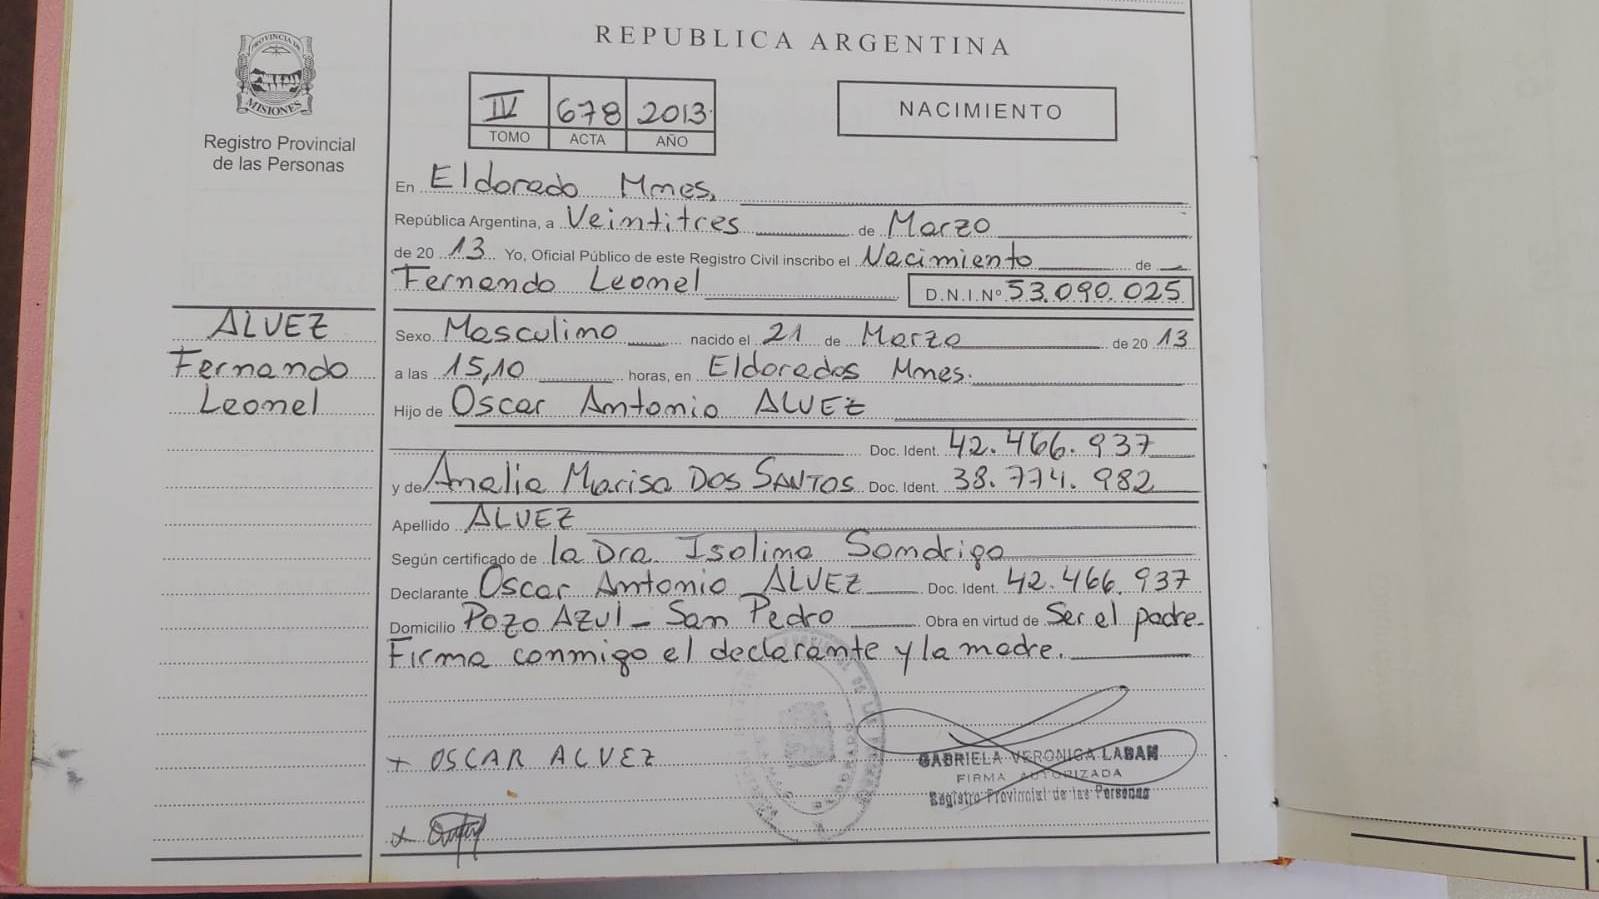 REPUBLICA ARGENTINA
PROVINCIA DE
MISIONES
Registro Provincial
de las Personas
IV 678 2013
TOMO ACTA AÑO
NACIMIENTO
En Eldorado Mnes.
República Argentina, a Veintitres de Marzo
de 20 13 Yo, Oficial Público de este Registro Civil inscribo el Nacimiento de
Fernando Leonel D.N.I.Nº 53.090.025
ALVEZ
Fernando
Leonel
Sexo Masculino nacido el 21 de Marzo de 20 13
a las 15,10 horas, en Eldorados Mnes.
Hijo de Oscar Antonio ALVEZ
Doc. Ident. 42.466.937
y de Analia Marisa DOS SANTOS Doc. Ident. 38.774.982
Apellido ALVEZ
Según certificado de la Dra. Isolina Sondrigo
Declarante Oscar Antonio ALVEZ Doc. Ident. 42.466.937
Domicilio Pozo AZUl - San Pedro Obra en virtud de Ser el padre.
Firma conmigo el declarante y la madre.
+ OSCAR ALVEZ
GABRIELA VERONICA LABAN
FIRMA AUTORIZADA
Registro Provincial de las Personas